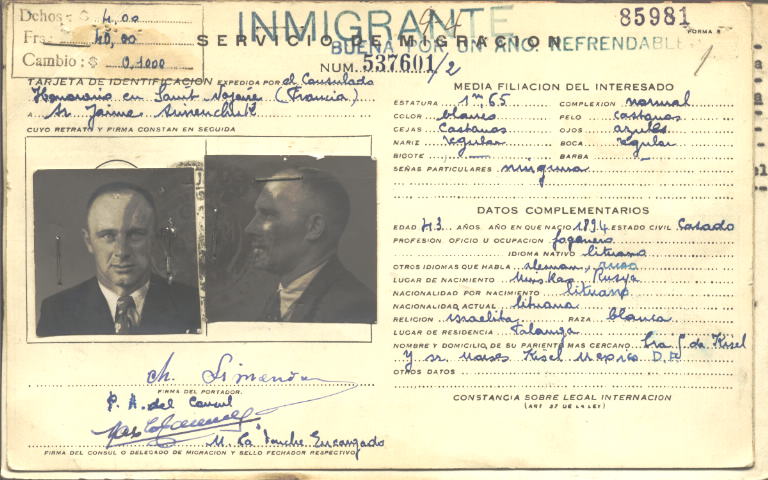 Dchos: $ 4,00
Frs. 40,00
Cambio: $ 0,1000
INMIGRANTE
85981
FORMA 8
SERVICIO DE MIGRACION
BUENA POR UN AÑO. REFRENDABLE
NUM. 537601/2
TARJETA DE IDENTIFICACION EXPEDIDA POR el Consulado
Honorario en Saint Nazaire (Francia)
A Sr. Jaime
CUYO RETRATO Y FIRMA CONSTAN EN SEGUIDA
MEDIA FILIACION DEL INTERESADO
ESTATURA 1m,65 COMPLEXION normal
COLOR blanco PELO castaños
CEJAS castañas OJOS azules
NARIZ regular BOCA regular
BIGOTE - BARBA -
SEÑAS PARTICULARES ninguna
DATOS COMPLEMENTARIOS
EDAD 43 AÑOS. AÑO EN QUE NACIO 1894 ESTADO CIVIL Casado
PROFESION OFICIO U OCUPACION fogonero
IDIOMA NATIVO lituano
OTROS IDIOMAS QUE HABLA aleman, ruso
LUGAR DE NACIMIENTO Rusya
NACIONALIDAD POR NACIMIENTO lituano
NACIONALIDAD ACTUAL lituana
RELIGION israelita RAZA blanca
LUGAR DE RESIDENCIA Palanga
NOMBRE Y DOMICILIO, DE SU PARIENTE MAS CERCANO Sra. G. de Kisel
y sr. Moises Kisel Mexico D.F.
OTROS DATOS
CONSTANCIA SOBRE LEGAL INTERNACION
(ART. 57 DE LA LEY)
FIRMA DEL PORTADOR.
P. A. del Consul
Encargado
FIRMA DEL CONSUL O DELEGADO DE MIGRACION Y SELLO FECHADOR RESPECTIVO